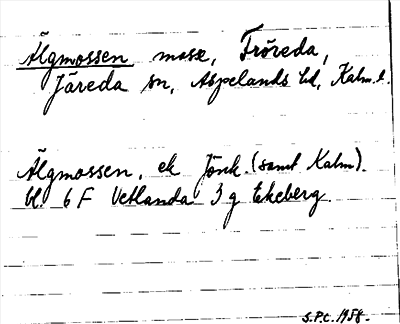 Älgmossen mosse, Fröreda,
Järeda sn, Aspelands hd, Kalm. l.
Älgmossen, ek Jönk. (samt Kalm).
bl. 6 F Vetlanda 3 g Ekeberg.
S.P.C. 1958.